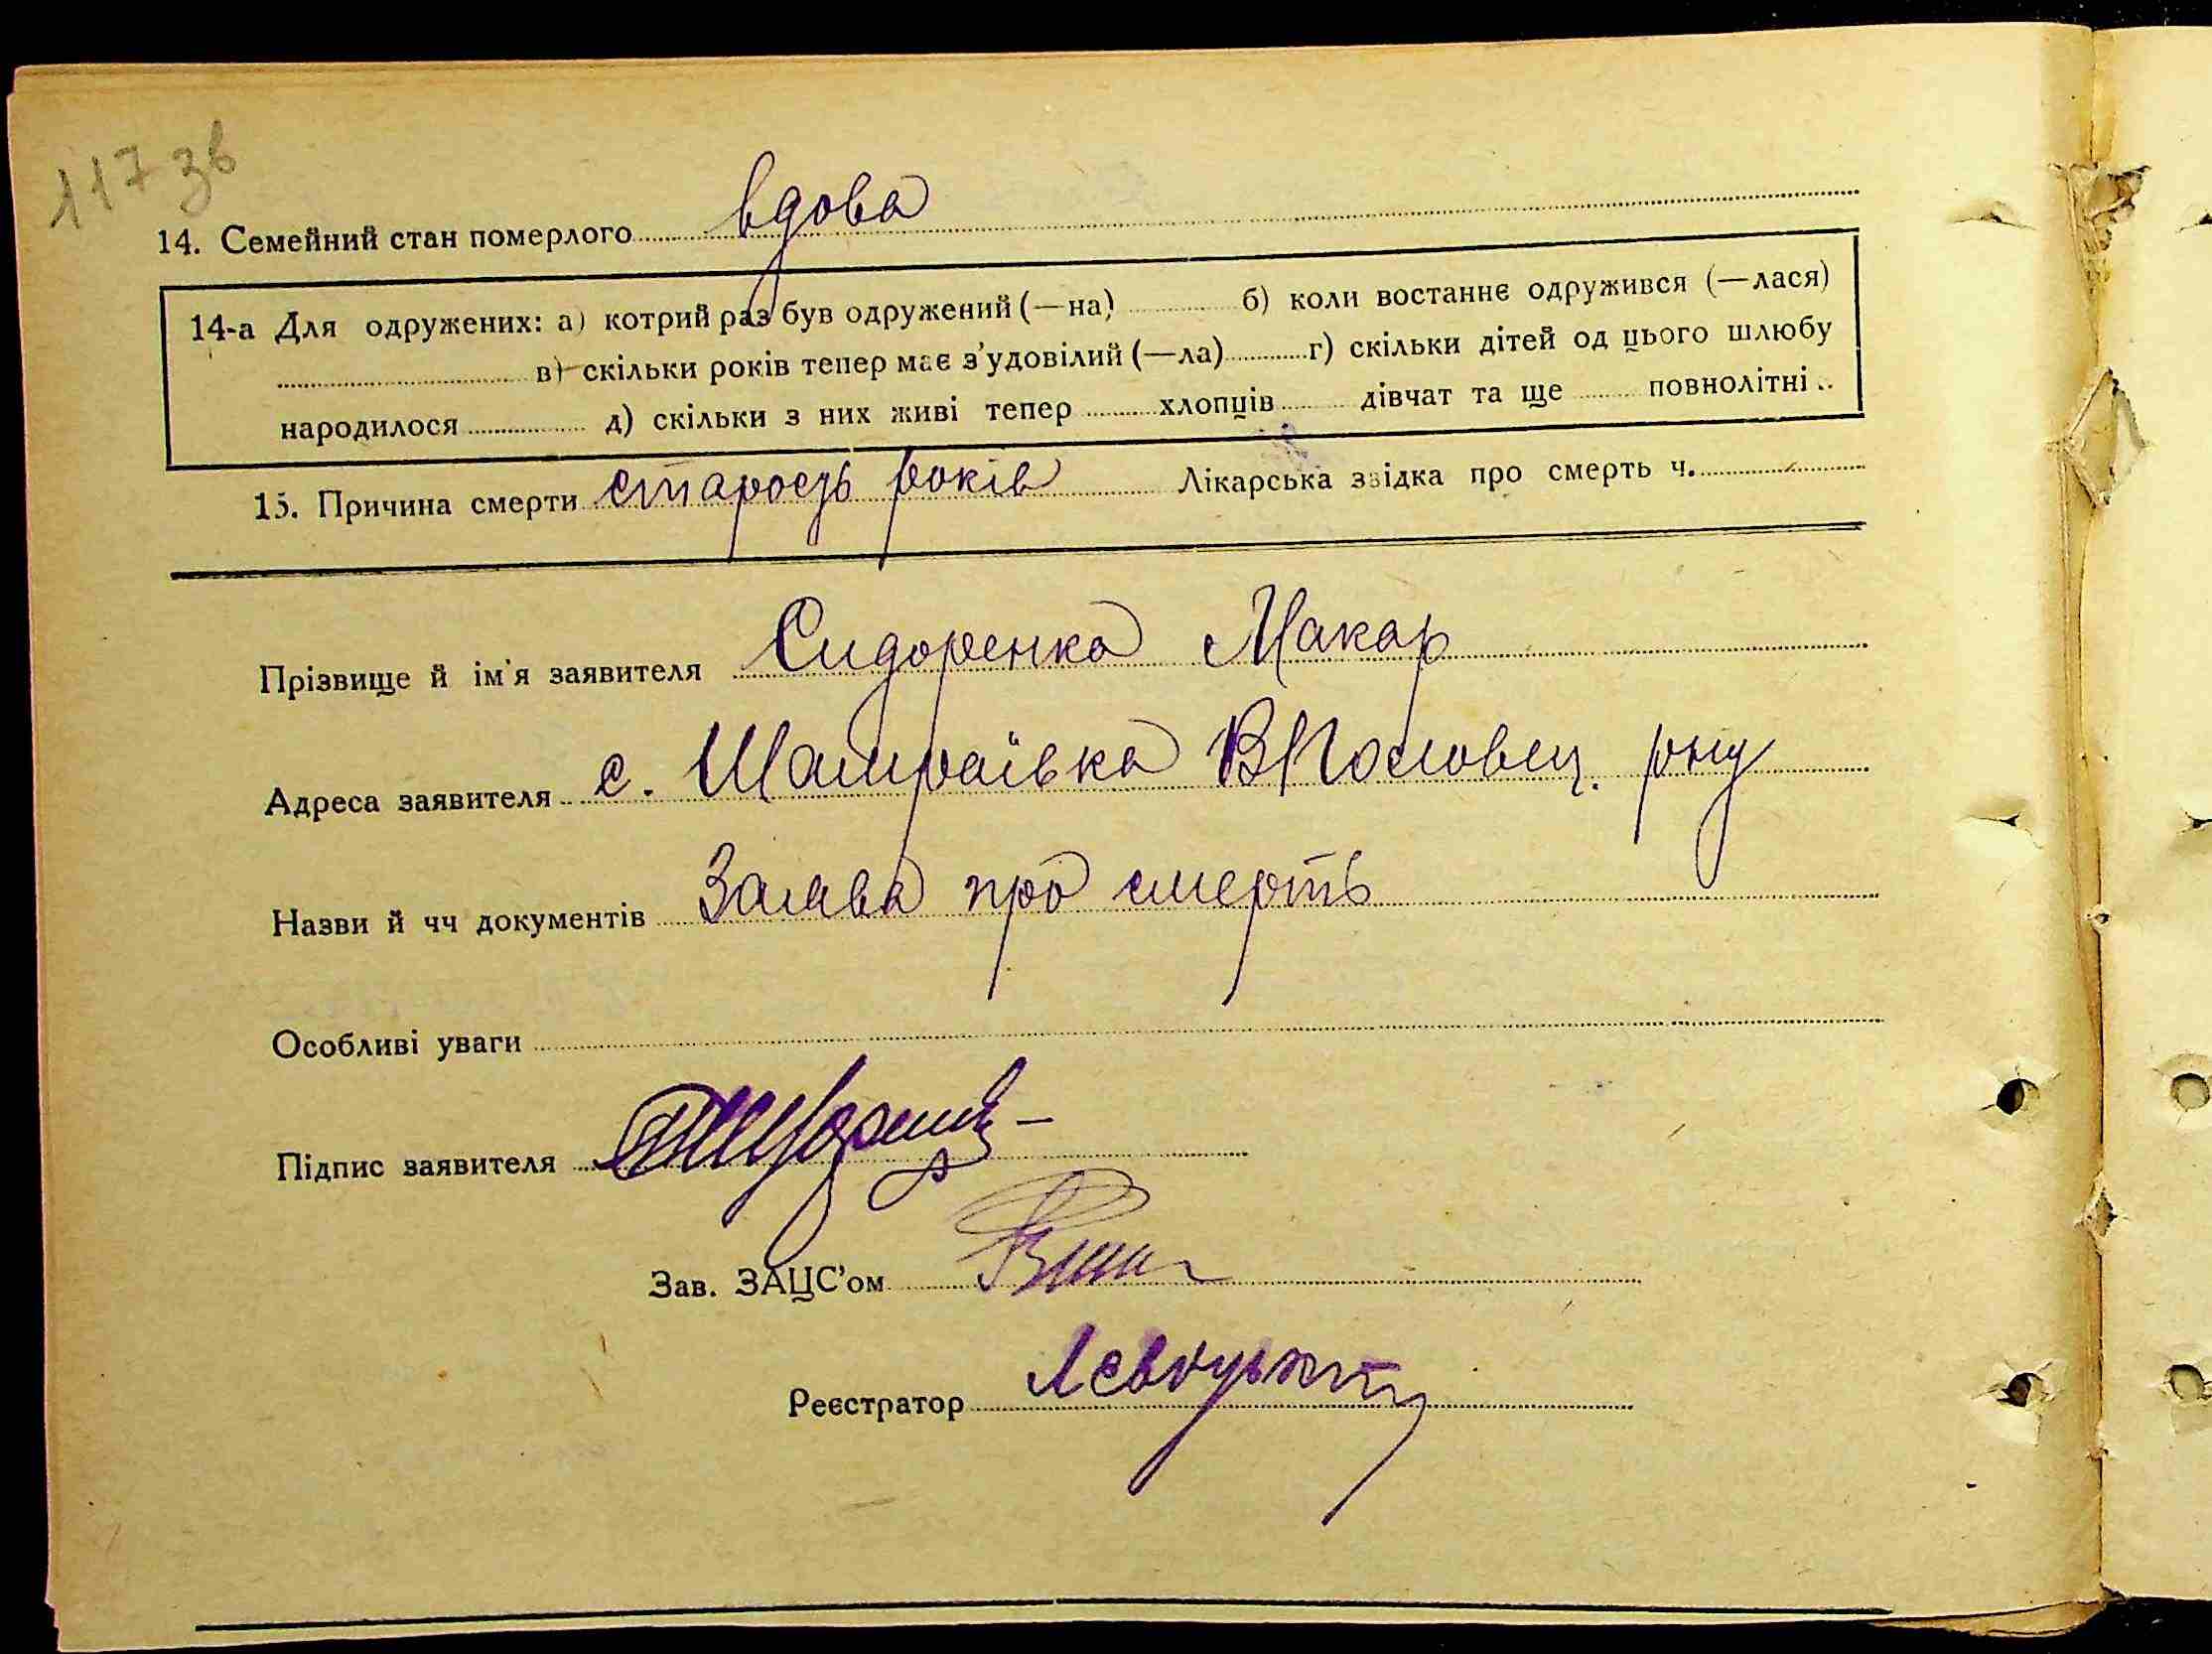 117 зв
14. Семейний стан померлого вдова
14-а Для одружених: а) котрий раз був одружений (—на) б) коли востаннє одружився (—лася)
в) скільки років тепер має з'удовілий (—ла) г) скільки дітей од цього шлюбу
народилося д) скільки з них живі тепер хлопців дівчат та ще повнолітні
15. Причина смерти старость років Лікарська звідка про смерть ч.
Прізвище й ім'я заявителя Сидоренко Макар
Адреса заявителя с. Шамраївка ВПоловец. рну
Назви й чч документів Заява про смерть
Особливі уваги
Підпис заявителя
Зав. ЗАЦС'ом
Реєстратор